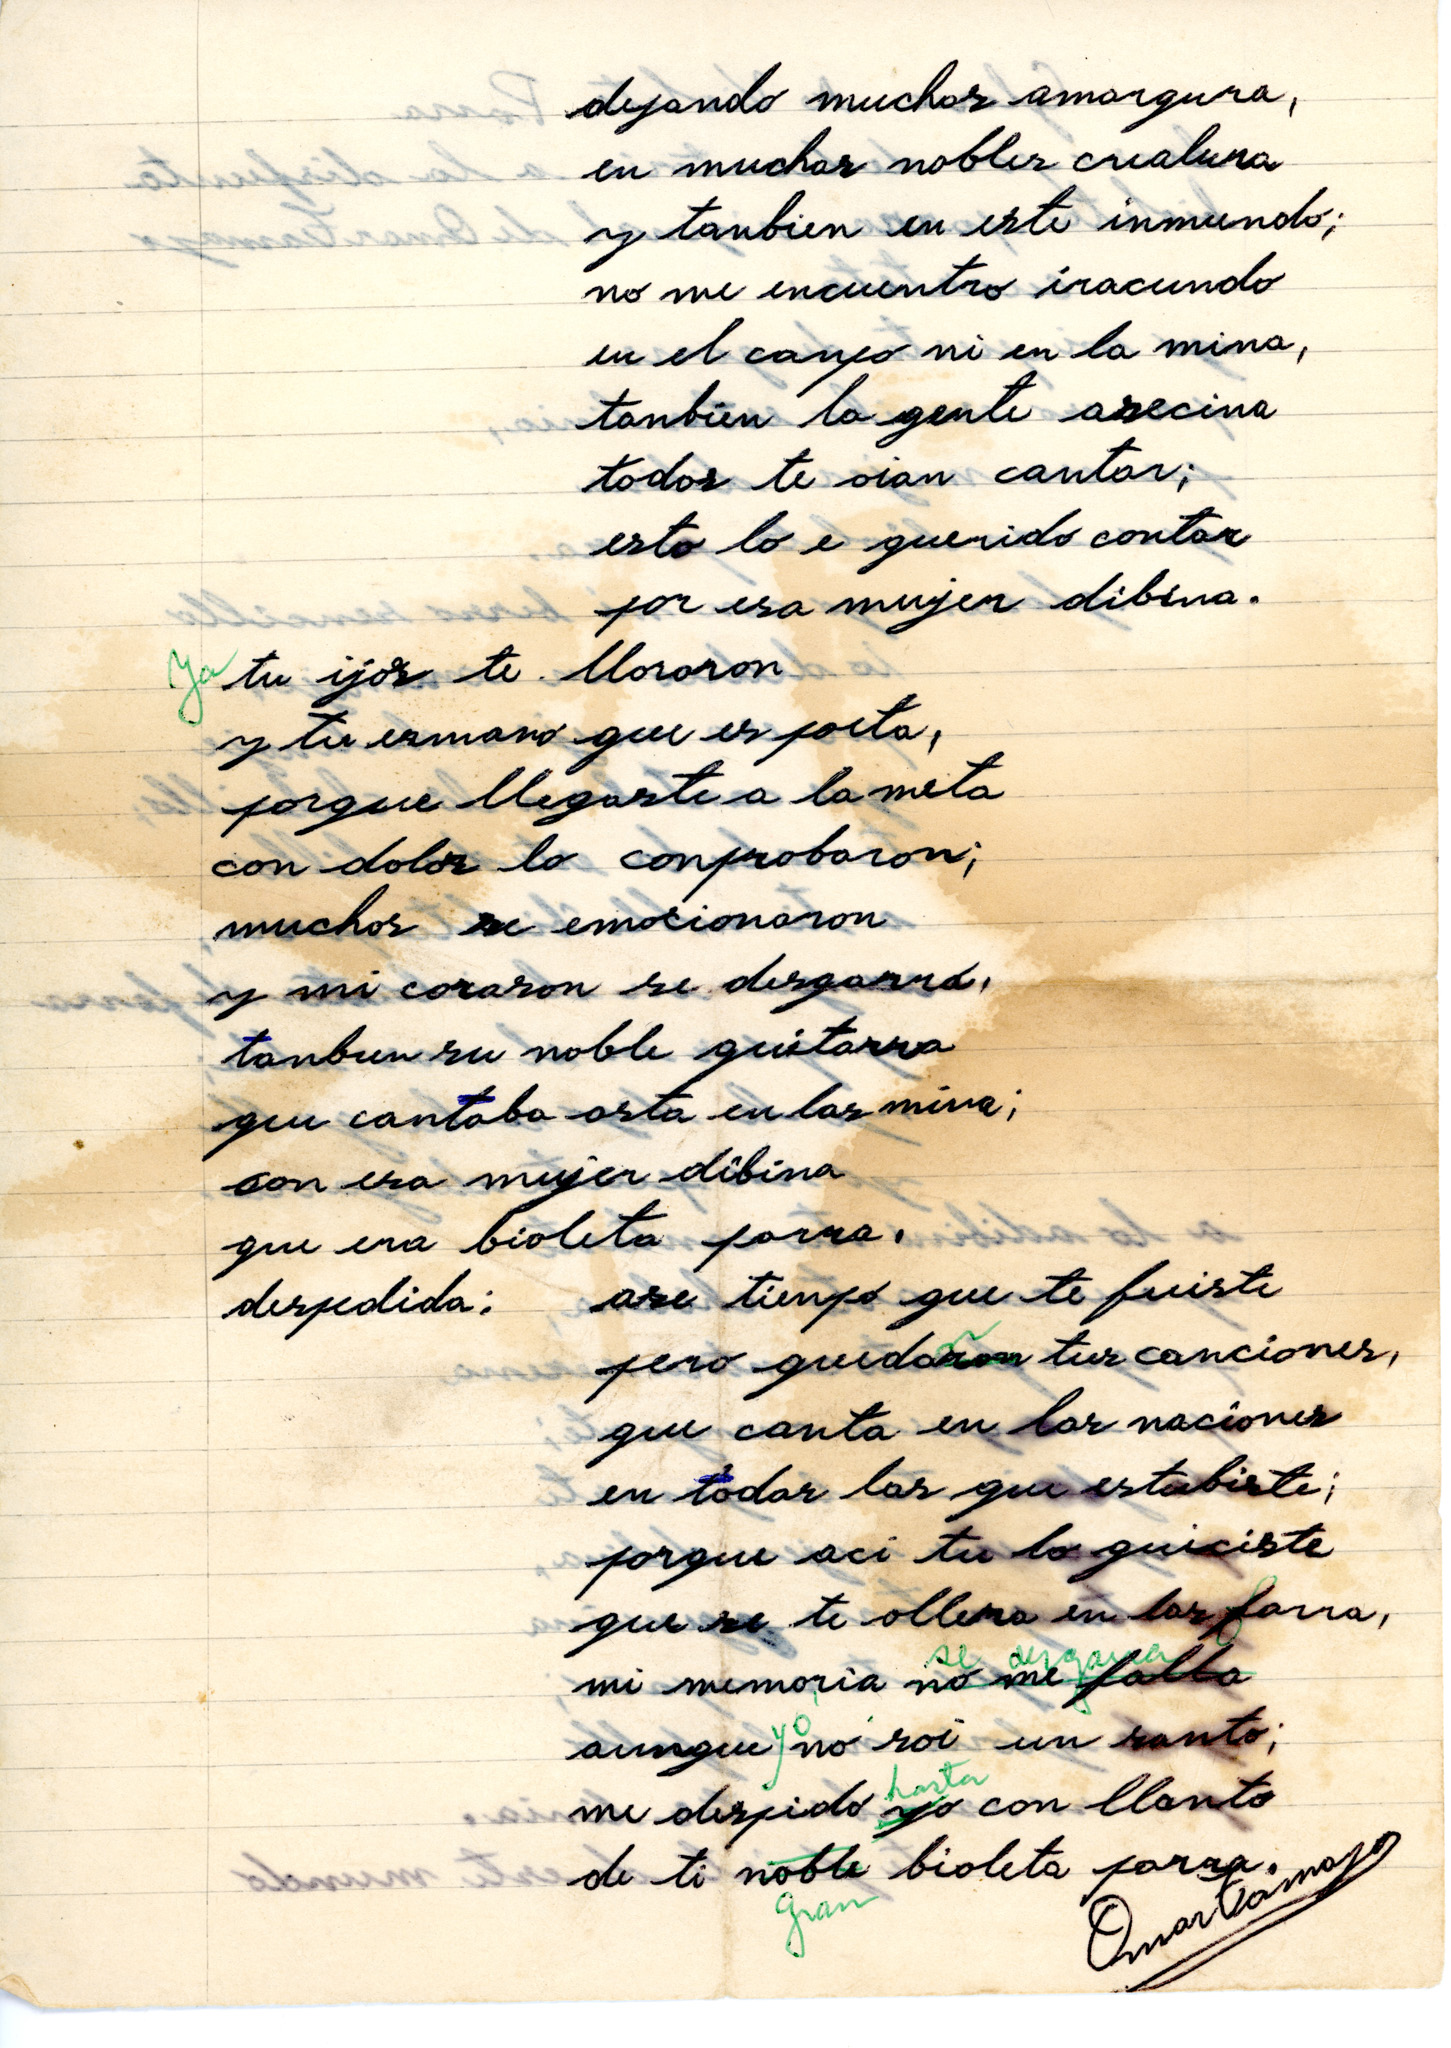 dejando muchas amargura,
en muchas nobles crealura
y tanbien en este inmundo;
no me encuentro iracundo
en el canpo ni en la mina,
tanbien la gente asecina
todos te oian cantar;
esto lo e querido contar
por esa mujer dibina.
Ya tu ijos te lloraron
y tu ermano que es poeta,
porque llegaste a la meta
con dolor lo conprobaron;
muchos se emocionaron
y mi corason se desgarra,
tanbien su noble guitarra
que cantaba asta en las mina;
con esa mujer dibina
que era bioleta parra.
despedida: ase tienpo que te fuiste
pero quedaron tus canciones,
que canta en las naciones
en todas las que estubiste;
porque aci tu lo quiciste
que se te ollera en las farra,
se desgarra
mi memoria no me falla
aunque yo no soi un santo;
hasta
me despido yo con llanto
de ti noble bioleta parra.
gran
Omar Tamayo